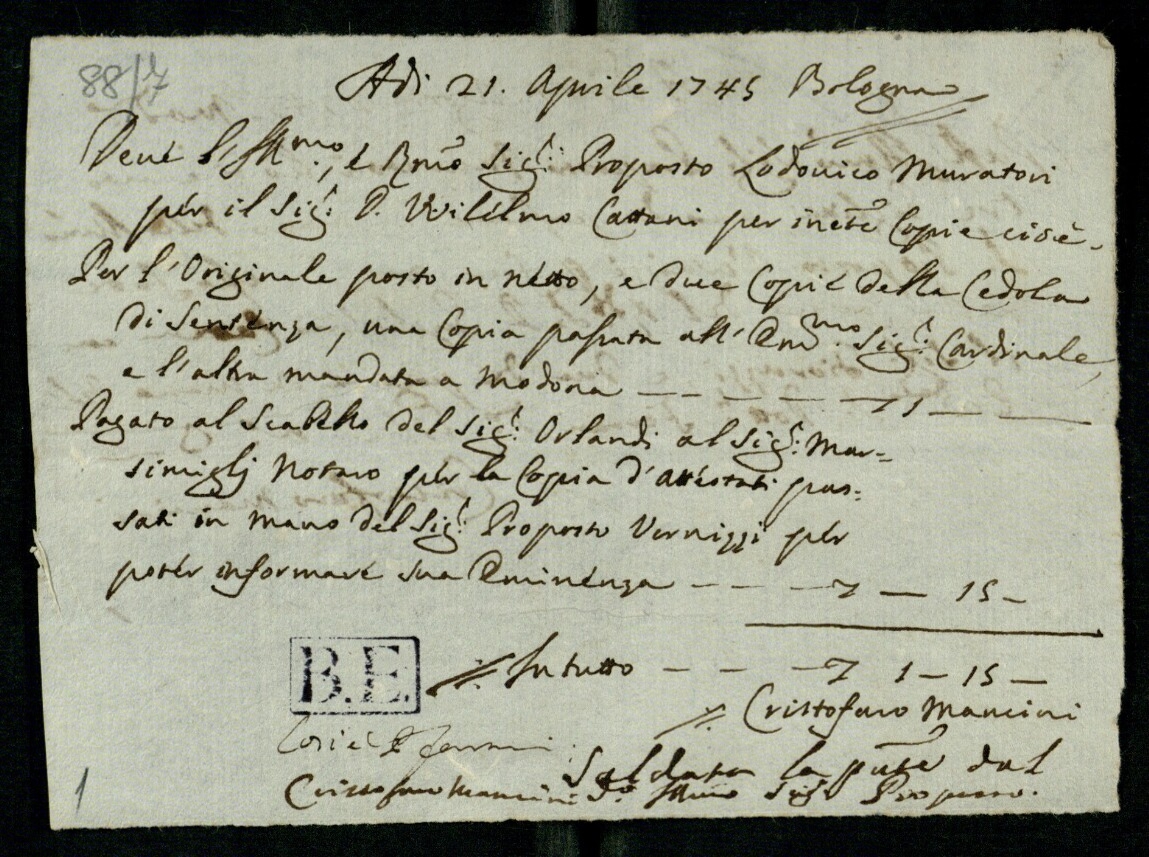 88/7
Adi 21. Aprile 1745 Bologna
Deve l'Ill.mo, e R.mo Sig.r Proposto Lodovico Muratori
per il Sig.r D. Wilelmo Cattani per Copie cioè.
Per l'Originale posto in netto, e due Copie della Cedola
di Sentenza, una Copia passata all'Em.mo Sig.r Cardinale,
e l'altra mandata a Modona — — — — — 1 —
Pagato al Scabello del Sig.r Orlandi al Sig.r Mar=
simiglj Notaro per la Copia d'Attestati pas=
sati in mano del Sig.r Proposto Vernizzi per
poter informare sua Eminenza — — — — — 15 —
B.E.
In tutto — — — 1 — 15 —
Cristofaro Mancini
Cosi è
Saldata la pnte dal
Cristofaro Mancini
Sig.r Proposto.
1